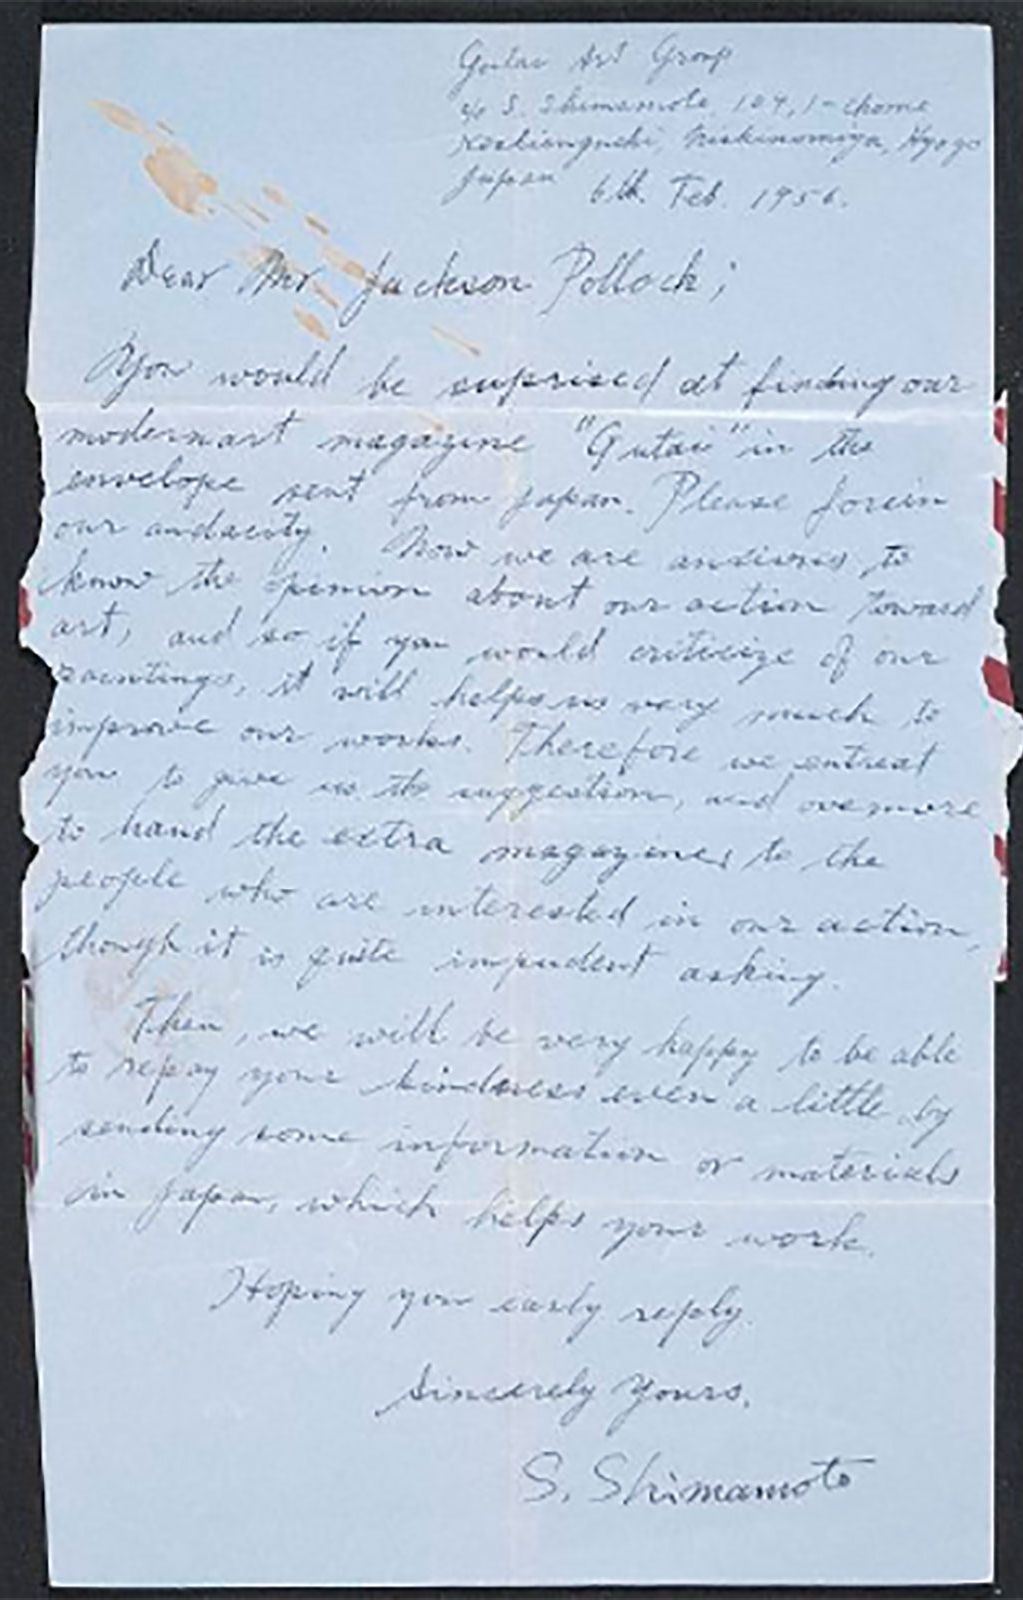 Gutai Art Group
c/o S. Shimamoto 104, 1-chome
Nishinomiya, Hyogo
Japan 6th. Feb. 1956.
Dear Mr Jackson Pollock;
You would be suprised at finding our
modern art magazine "Gutai" in the
envelope sent from Japan. Please
our audacity. Now we are anxious to
know the opinion about our action toward
art, and so if you would criticize of our
paintings, it will helps us very much to
improve our works. Therefore we entreat
you to give us the suggestion, and overmore
to hand the extra magazines to the
people who are interested in our action,
though it is quite impudent asking.
Then, we will be very happy to be able
to repay your kindness even a little by
sending some information or materials
in Japan, which helps your work.
Hoping your early reply.
Sincerely Yours,
S. Shimamoto